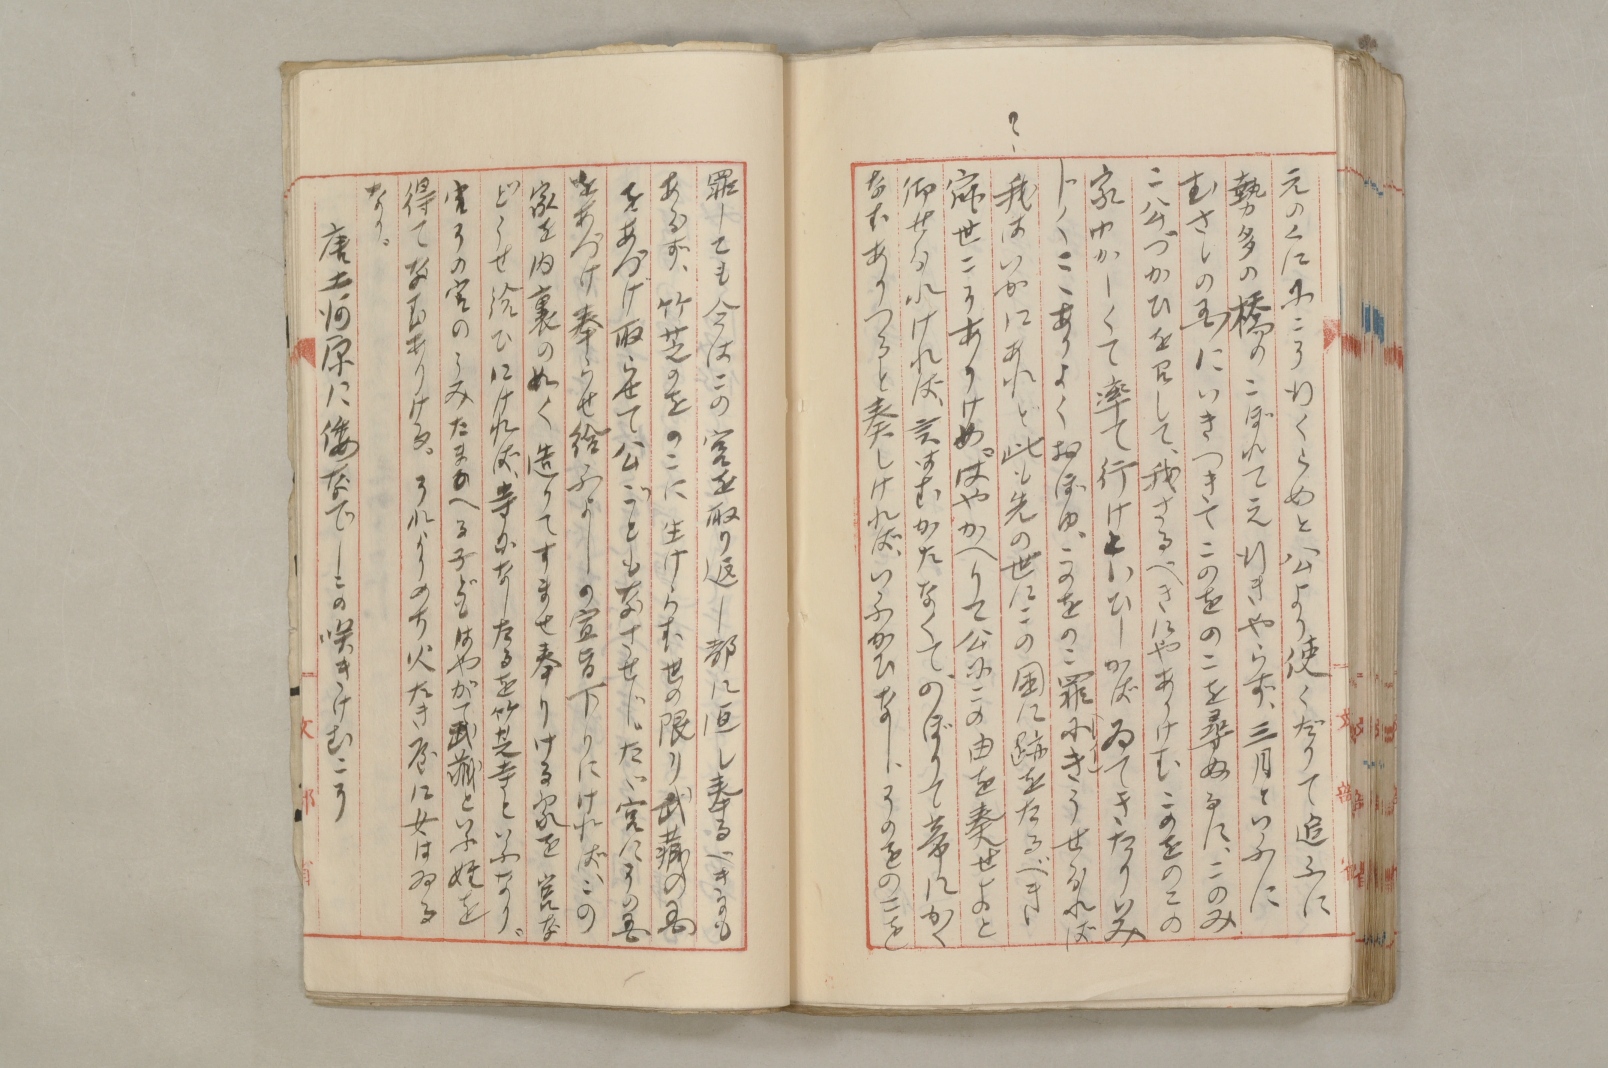 元のくににこそ行くらめと公より使くだりて追ふに
勢多の橋のこぼれてえ行きやらず、三月といふに
むさしの国にいきつきてこのをのこを尋ぬるに、このみ
こ公づかひを召して、我さるべきにやありけむこのをのこの
家ゆかしくて率て行けといひしかばゐてきたりいみ
じくここありよくおぼゆ、このをのこ罪にきうせられば
我はいかにあれと此も先の世にこの国に跡をたるべき
宿世こそありけめ。はやかへりて公にこの由を奏せよと
仰せられければ、言はむかたなくて、のぼりて帝にかく
なむありつると奏しければ、いふかひなし、そのをのこを
罪しても今はこの宮を取り返し都に返し奉るべきにも
あらず、竹芝のをのこに生けらむ世の限り武藏の国
をあづけ取らせて公ごともなさせじ、たゞ宮にその国
をあづけ奉らせ給ふよしの宣旨下りにければ、この
家を内裏の如く造りてすませ奉りける家を宮な
どうせ給ひにければ、寺になしたるを竹芝寺といふなり。
宮その宮のうみたまへる子どもはやがて武藏といふ姓を
得てなむありける。それよりのち火たき屋に女はゐる
なり。
唐土河原に倭なでしこの咲きけむこそ
文部省